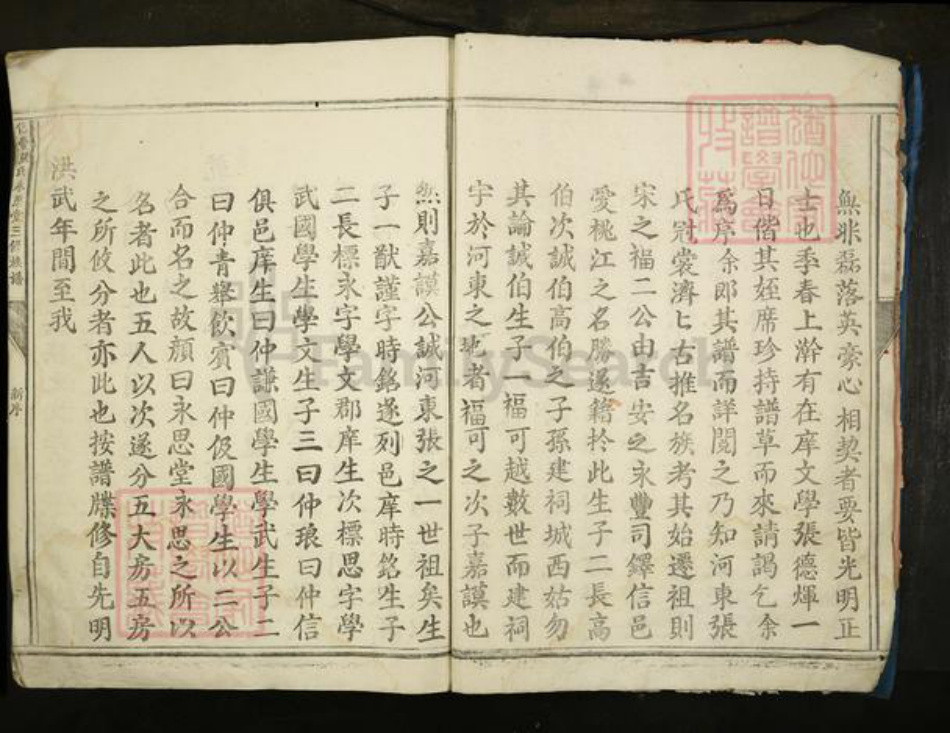 無非磊落英豪心相契者要皆光明正
士也季春上澣有在庠文學張德煇一
日偕其姪席珍持譜草而來請謁乞余
為序余即其譜而詳閱之乃知河東張
氏冠裳濟匕古推名族考其始遷祖則
宋之福二公由吉安之永豐司鐸信邑
愛桃江之名勝遂籍於此生子二長高
伯次誠伯高伯之子孫建祠城西姑勿
其論誠伯生子一福可越數世而建祠
宇於河東之地者福可之次子嘉謨也
無則嘉謨公誠河東張之一世祖矣生
子一猷謹字時銘遂列邑庠時銘生子
二長標永字學文郡庠生次標思字學
武國學生學文生子三曰仲琅曰仲信
俱邑庠生曰仲謙國學生學武生子二
曰仲青舉飲賓曰仲伋國學生以二公
合而名之故顏曰永思堂永思之所以
名者此也五人以次遂分五大房五房
之所攸分者亦此也按譜牒修自先明
洪武年間至我
氏永思堂三修族譜
新序
FamilySearch